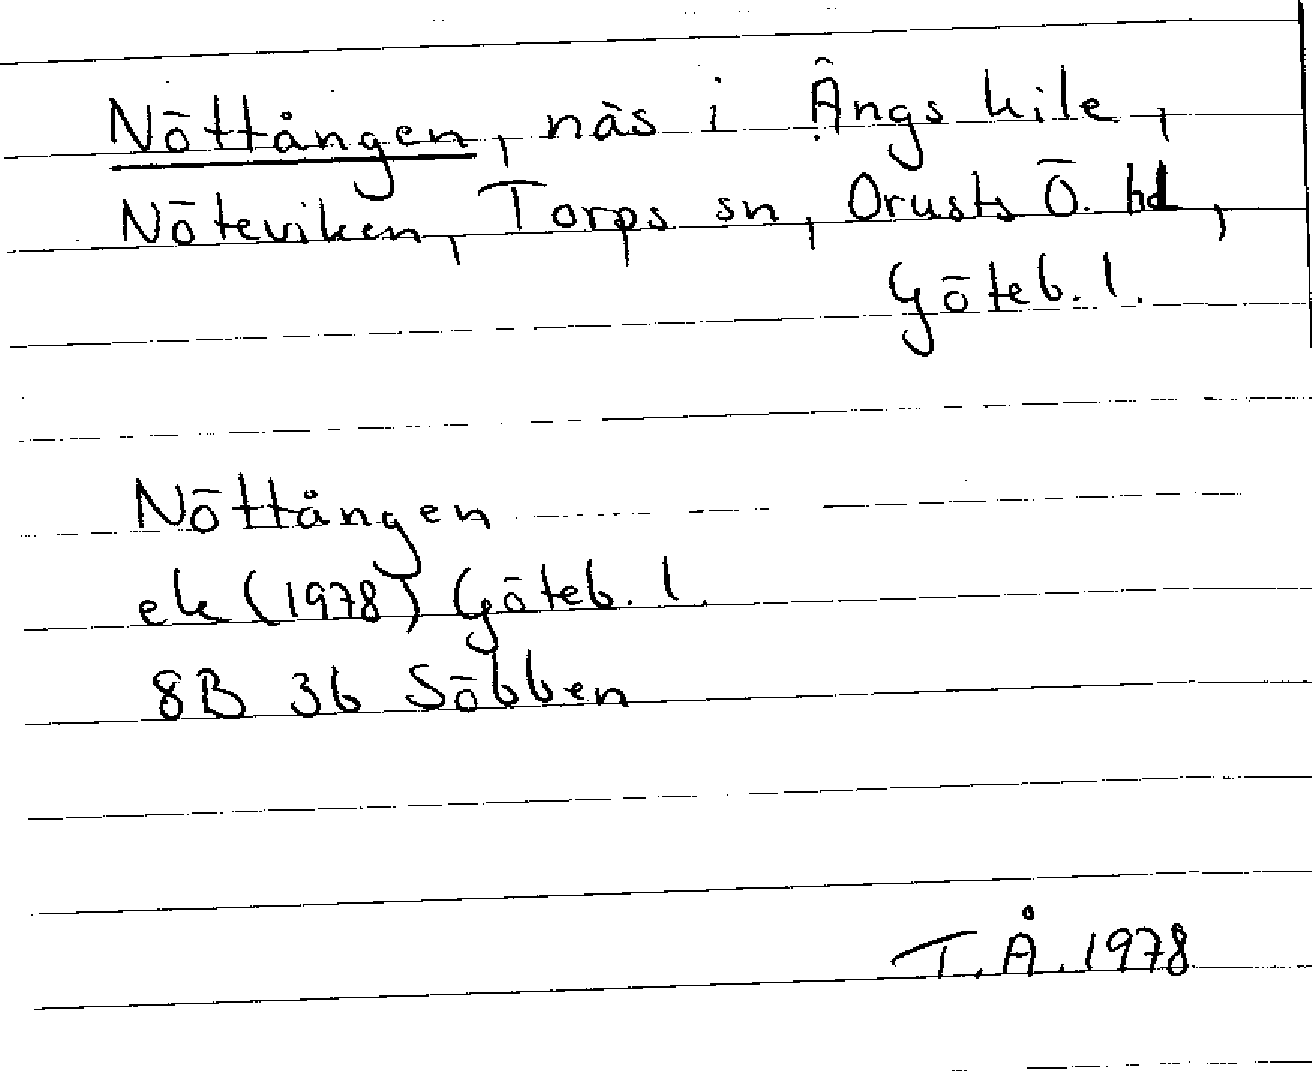 Nöttången, näs i Ängs kile,
Nöteviken, Torps sn, Orusts Ö. hd,
Göteb. l.
Nöttången
ek (1978) Göteb. l.
8B 3b Söbben
T.Å. 1978